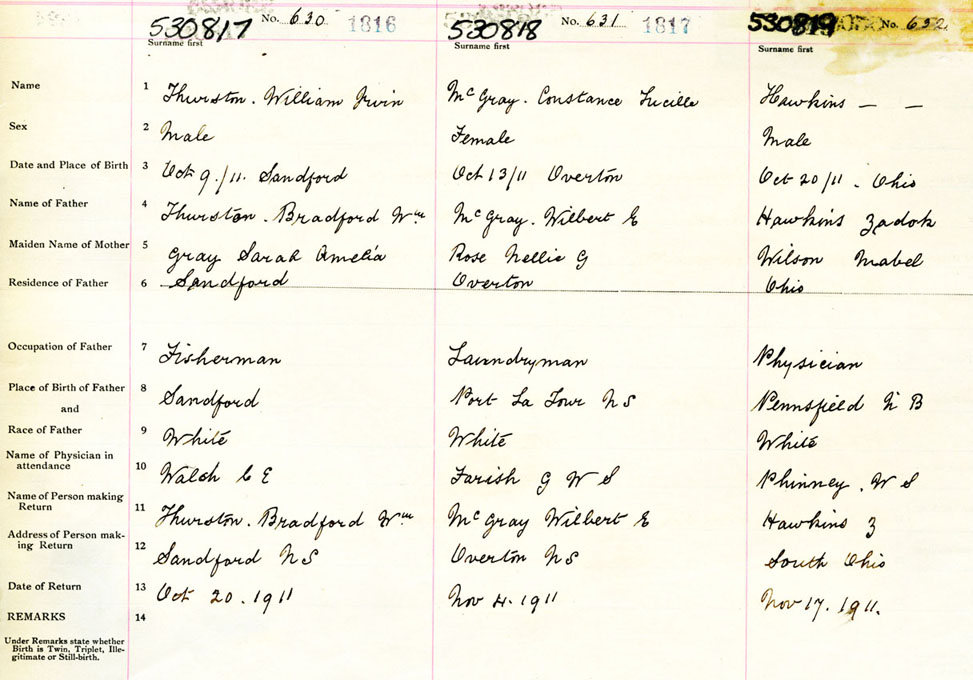 530817 No. 630 1816 530818 No. 631 1817 530819 No. 632
Surname first Surname first Surname first
Name 1 Thurston. William Irvin McGray. Constance Lucille Hawkins — —
Sex 2 Male Female Male
Date and Place of Birth 3 Oct 9./11. Sandford Oct 13/11 Overton Oct 20/11. Ohio
Name of Father 4 Thurston. Bradford Wm McGray. Wilbert E Hawkins Zadok
Maiden Name of Mother 5 Gray Sarah Amelia Rose Nellie G Wilson Mabel
Residence of Father 6 Sandford Overton Ohio
Occupation of Father 7 Fisherman Laundryman Physician
Place of Birth of Father 8 Sandford Port La Tour N S Pennsfield N B
and
Race of Father 9 White White White
Name of Physician in
attendance 10 Walsh C E Farish G W S Phinney. W S
Name of Person making
Return 11 Thurston. Bradford Wm McGray Wilbert E Hawkins Z
Address of Person mak-
ing Return 12 Sandford N S Overton N S South Ohio
Date of Return 13 Oct 20. 1911 Nov 4. 1911 Nov 17. 1911.
REMARKS 14
Under Remarks state whether
Birth is Twin, Triplet, Ille-
gitimate or Still-birth.